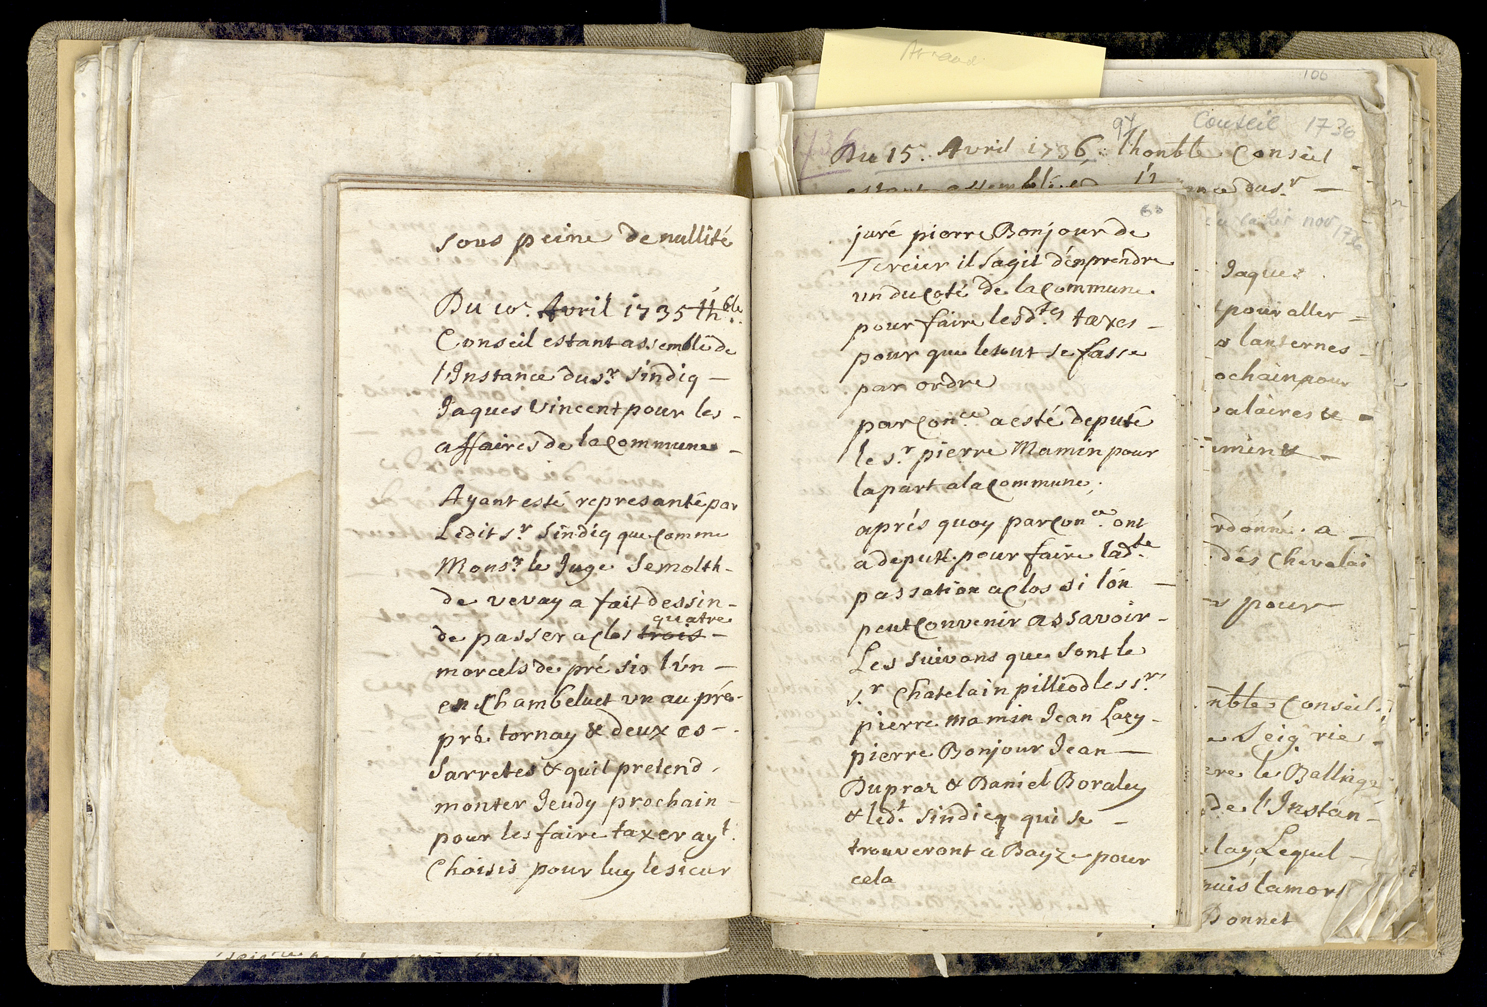 sous peine de nullité
Du 10.e Avril 1735 l'h.ble
Conseil estant assemblé de
l'Instance du s.r sindiq
Jaques Vincent pour les
affaires de la Commune
Ayant esté represanté par
Ledit s.r sindiq que Comme
Mons.r le Juge
de vevay a fait dessin
quatre
de passer a Clos trois
morcels de pré sis l'un
en Chambeluet un au pré
pré tornay & deux es
sarretes & quil pretend
monter Jeudy prochain
pour les faire taxer ay.t
Choisis pour luy le sieur
60
juré pierre Bonjour de
Tercier il s'agit d'en prendre
un du Coté de la Commune
pour faire lesd.tes taxes
pour que le tout se fasse
par ordre
par Con.ce a esté deputé
le s.r pierre Mamin pour
la part a la Commune;
aprés quoy par Con.ce ont
a deputé pour faire lad.te
passation a Clos si l'on
peut Convenir assavoir
Les suivans que sont le
s.r Chatelain pilliod les s.rs
pierre mamin Jean Lazy
pierre Bonjour Jean
Dupraz & Daniel Boraley
& led.t sindicq qui se
trouveront a Bayze pour
cela
106
97 Conseil 1736
Du 15. Avril 1736. l'honble Conseil
du s.r
nov
1736
Jaques
pour aller
lanternes
ochain pour
alaires &
rdonné a
dés Chevalai
pour
nble Conseil
Seig.rie
le Ballinge
de l'Instan
lay Lequel
puis la mort
Bonnet